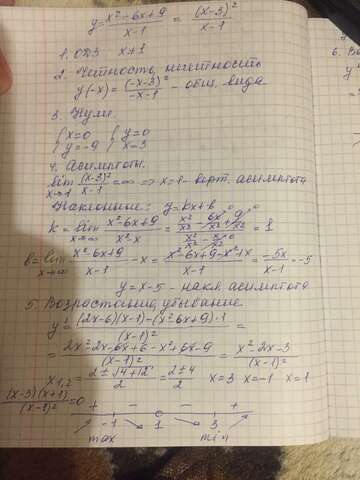 y = x²-6x+9 / x-1 = (x-3)² / x-1
1. ОДЗ x≠1
2. Четность, нечетность
y(-x) = (-x-3)² / -x-1 - общ. вида
3. Нули.
{x=0 {y=0
{y=-9 {x=3
4. Асимптоты.
lim x→1 (x-3)² / x-1 = ∞ => x=1 - верт. асимптота
Наклонные: y=kx+b
k = lim x→∞ x²-6x+9 / x²-x = x²/x² - 6x/x² + 9/x² / x²/x² - x/x² = 1
b = lim x→∞ x²-6x+9 / x-1 - x = x²-6x+9-x²+x / x-1 = -5x / x-1 = -5
y=x-5 - накл. асимптота
5. Возрастание, убывание
y' = (2x-6)(x-1)-(x²-6x+9)·1 / (x-1)² =
= 2x²-2x-6x+6-x²+6x-9 / (x-1)² = x²-2x-3 / (x-1)²
x1,2 = 2±√4+12 / 2 = 2±4 / 2 x=3 x=-1 x=1
(x-3)(x+1) / (x-1)² = 0
+ - - +
-1 1 3
max min
6.